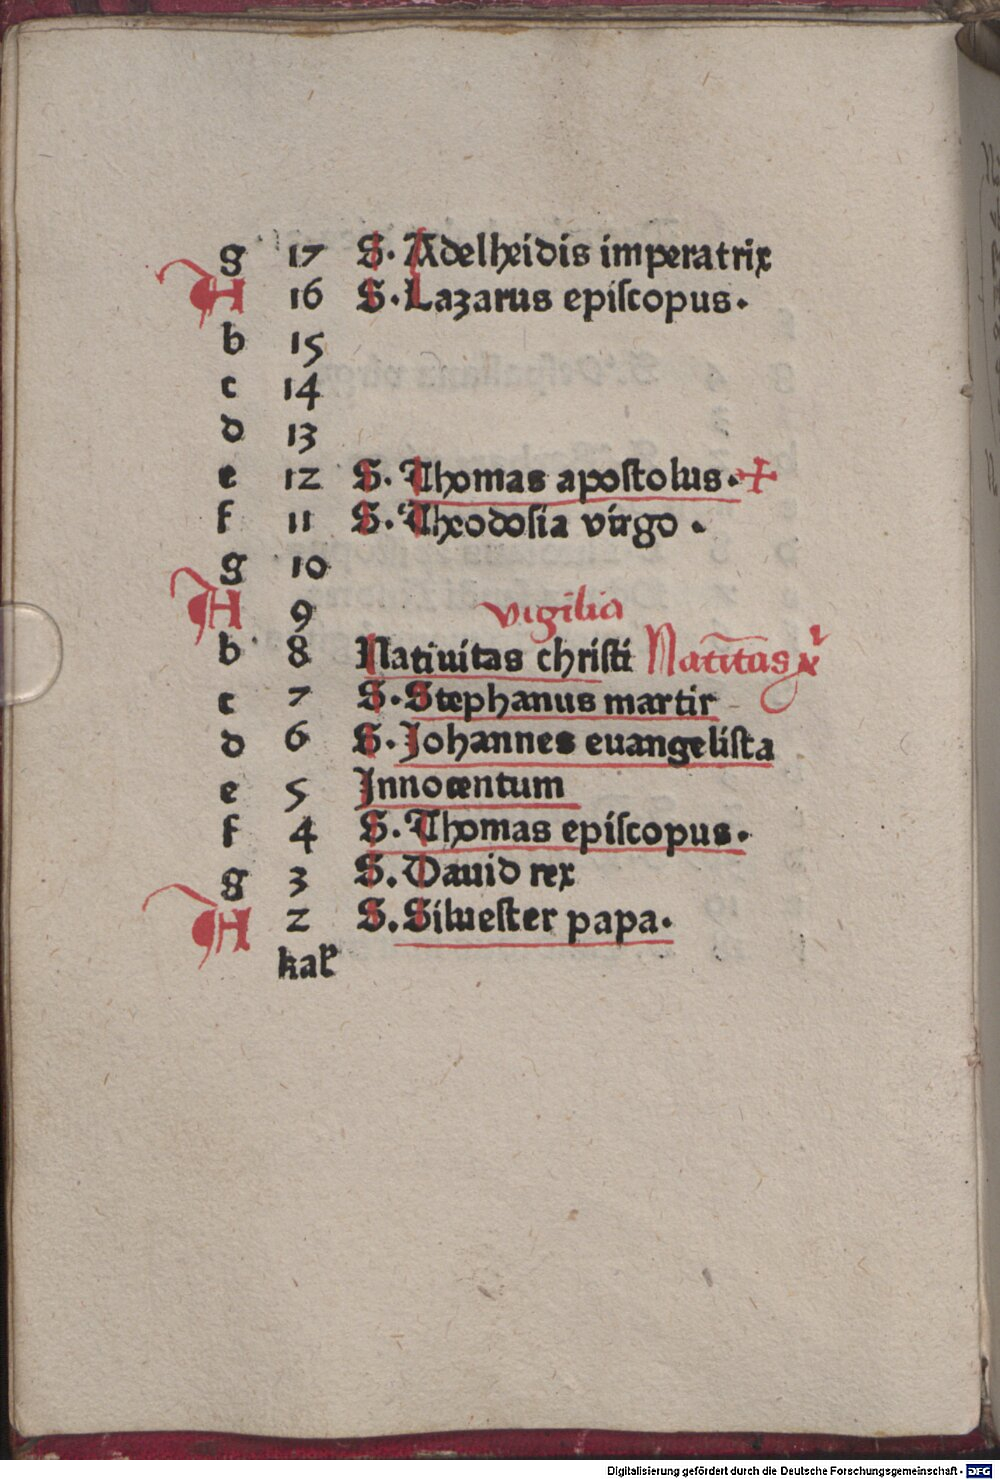 g 17 S. Adelheidis imperatrix
A 16 S. Lazarus epiſcopus.
b 15
c 14
d 13
e 12 S. Thomas apoſtolus. +
f 11 S. Theodoſia virgo.
g 10
A 9 vigilia
b 8 Natiuitas chriſti
c 7 S. Stephanus martir
d 6 S. Johannes euangeliſta
e 5 Innocentum
f 4 S. Thomas epiſcopus.
g 3 S. Dauid rex
A 2 S. Silueſter papa.
kal
Digitalisierung gefördert durch die Deutsche Forschungsgemeinschaft - DFG